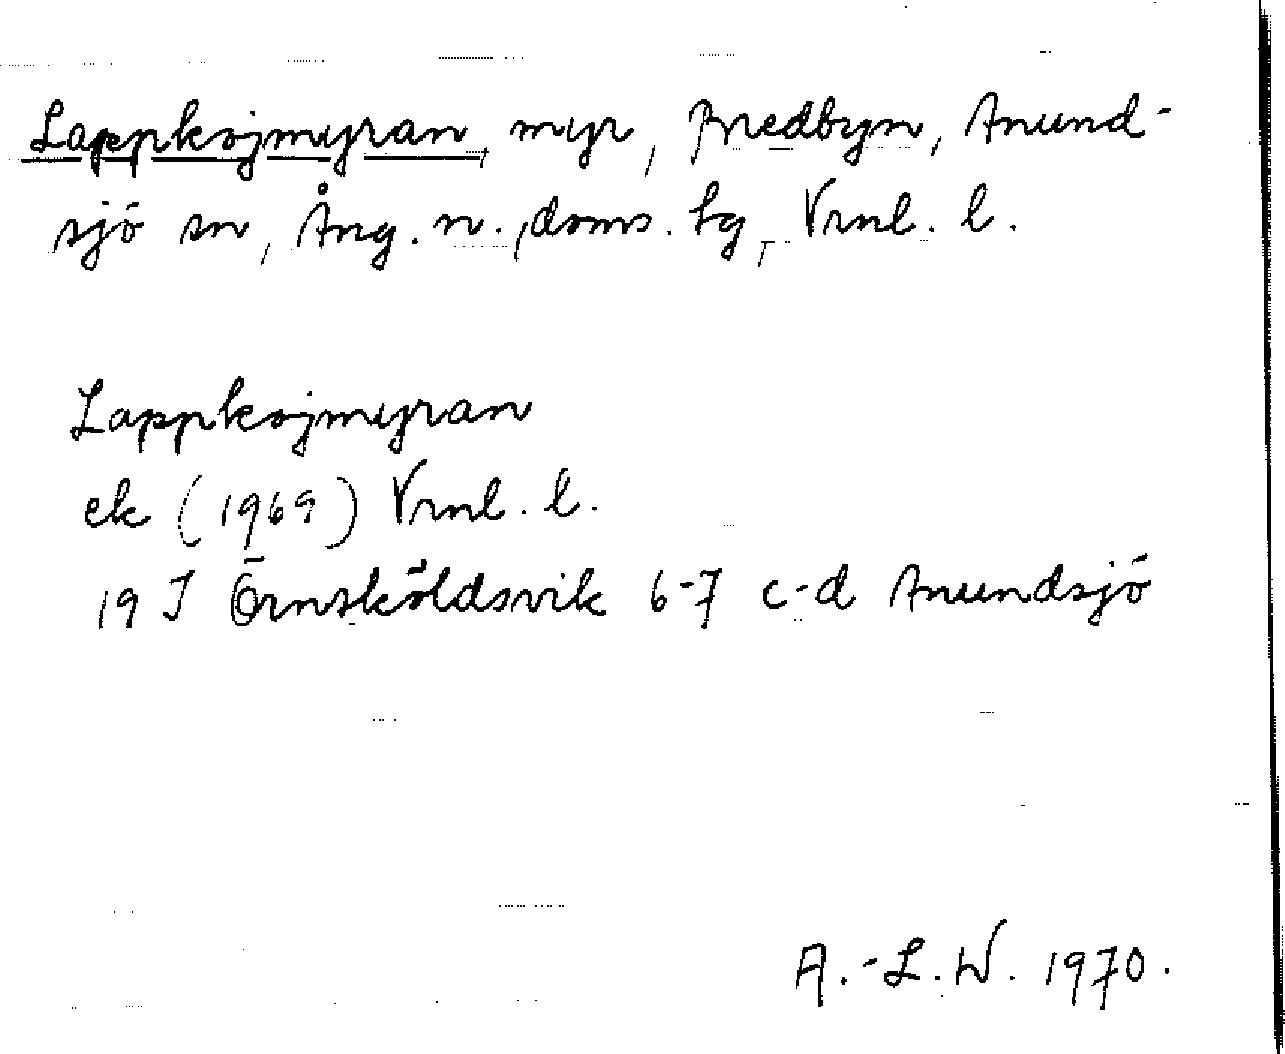 Lappkojmyran, myr, Bredbyn, Anund-
sjö sn, Ång. n., doms. hg, Vrnl. l.
Lappkojmyran
ek (1969) Vrnl. l.
19 J Örnsköldsvik 6-7 c-d Anundsjö
A.-L.W. 1970.